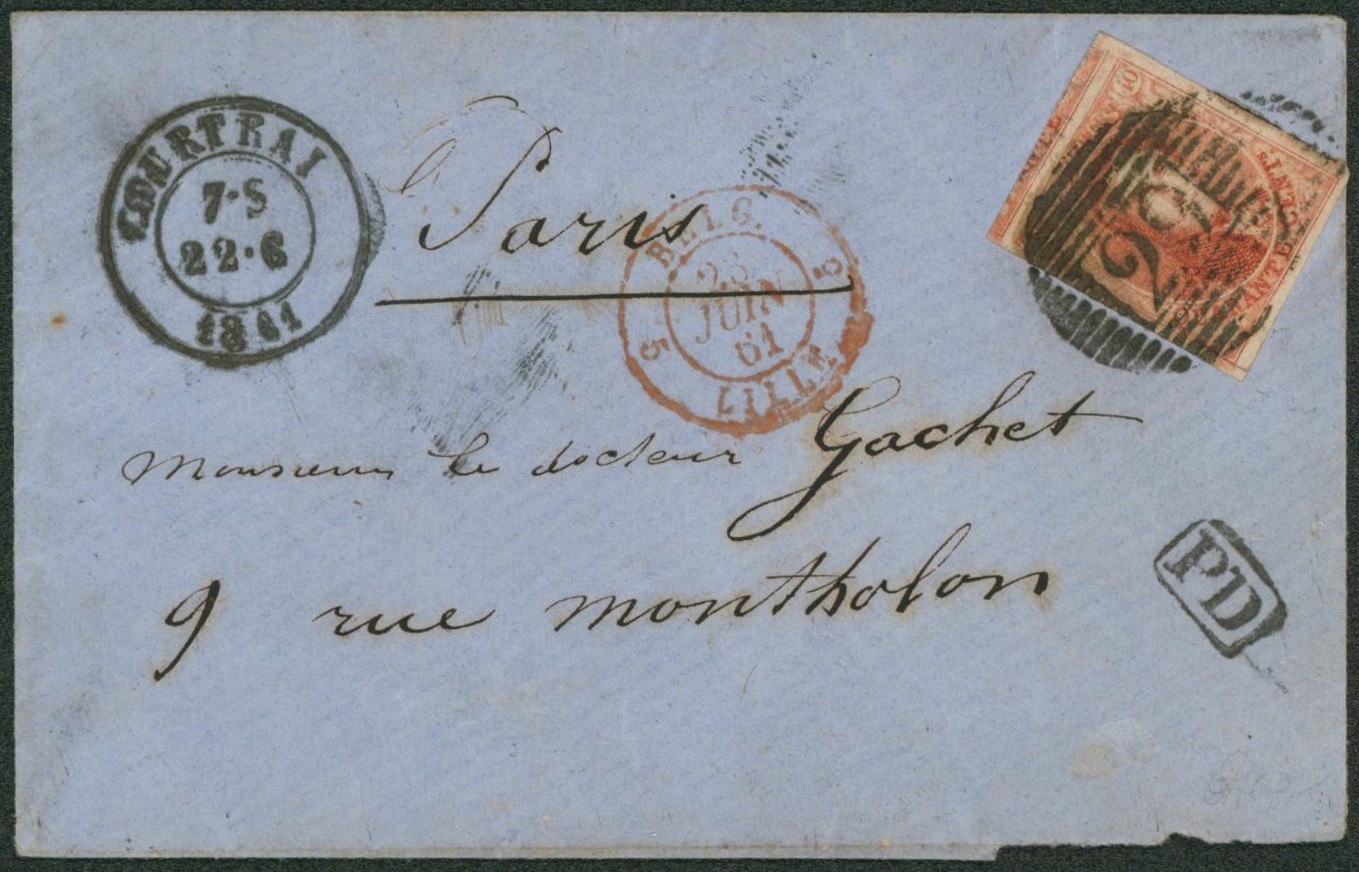 COURTRAI
7·S
22·6
1861
à Paris
BELG.
23
JUIN
61
5 LILLE 2
40
CENTES
QUARANTE
Monsieur le docteur Gachet
9 rue montholon
PD